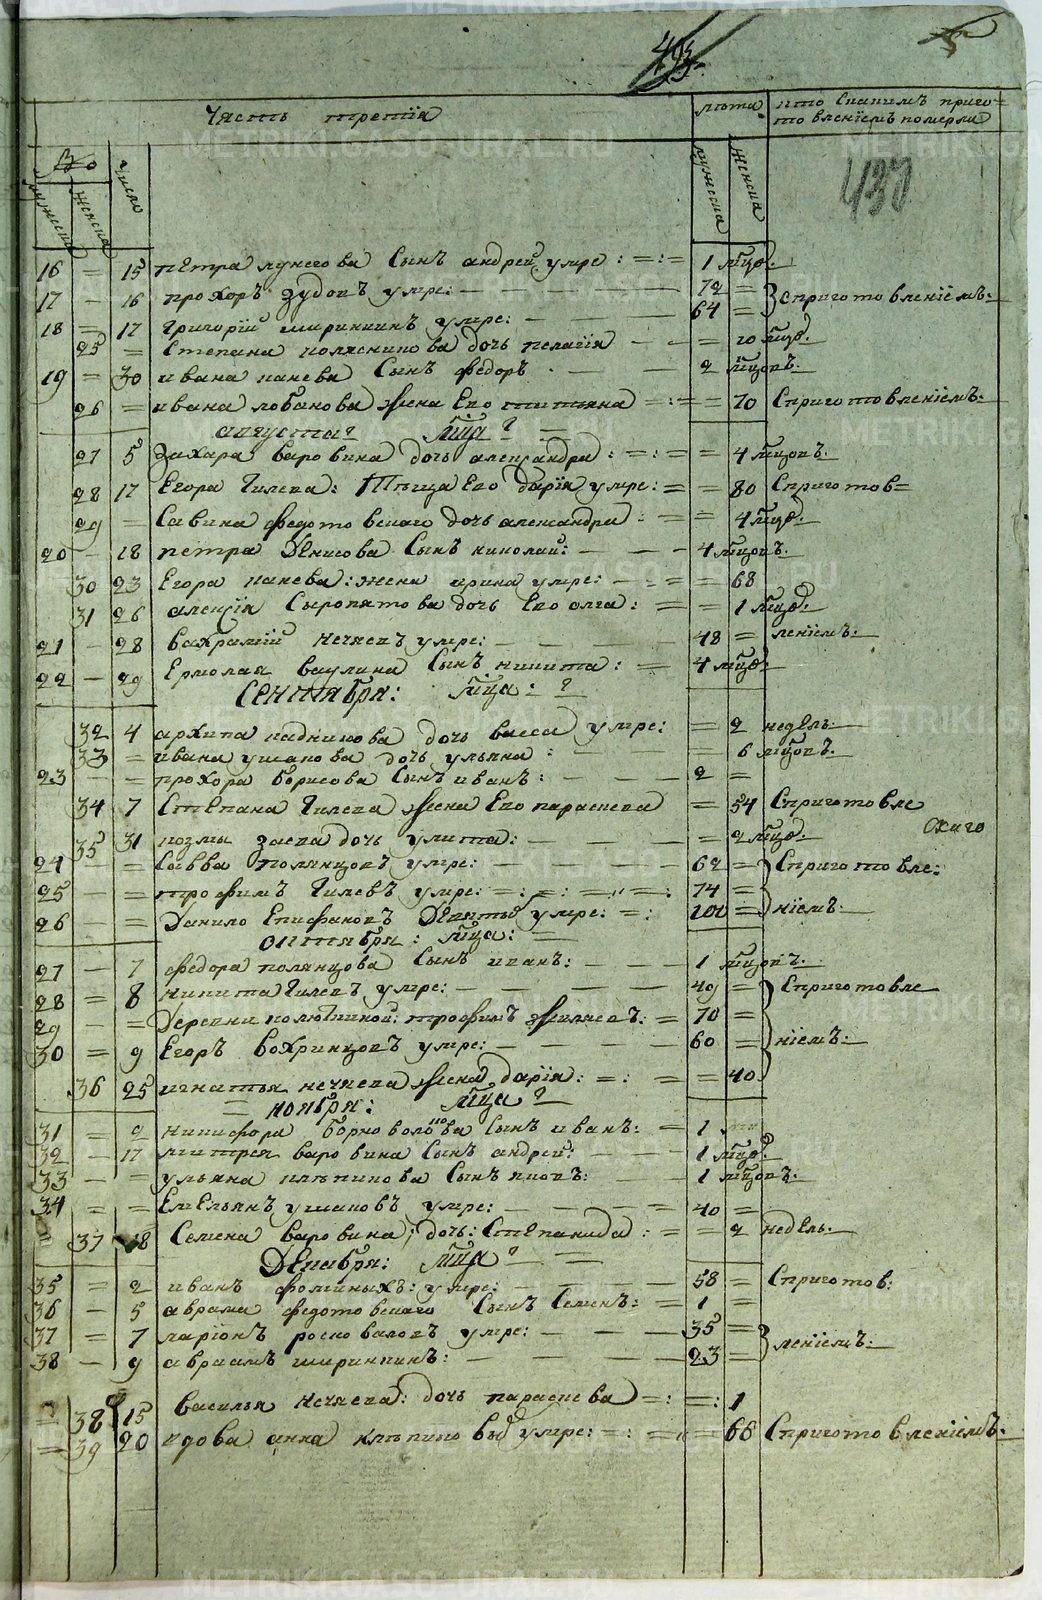 493.
5
Часть третїя
лѣта
кто скакимъ приго=
товленїемъ померли
437
Во
Число
мужеска
женска
мужеска
женска
16 = 15 петра лунегова сынъ андрей умре : = : = 1 мцъ:
17 - 16 прохоръ зудовъ умре: — — — 72 = сприготовленїемъ:
18 = 17 григорїй ширинкинъ умре: — — — 64 =
25 = степана колясникова дочь пелагїя — — = 10 мцъ:
19 = 30 ивана панева сынъ федоръ . — — 2 мцовъ:
26 = ивана лобанова жена Его татьяна = : = = 70 Сприготовленїемъ:
августа мца
27 5 захара варовина дочь александра : = : = = 4 мцовъ:
28 17 Егора гилева: Тѣща Его дарїя умре: = = 80 Спригото в=
29 = савина федотовскаго дочь александра : = = 4 мцъ:
20 - 18 петра денисова сынъ николай: — — — 4 мцовъ:
30 23 Егора панева: жена ирина умре: — = = 68
31 26 алексїя сыропятова дочь Его олга : = = 1 мцъ:
21 - 28 вахрамѣй нечаевъ умре: — — — 48 = ленїемъ:
22 - 29 Ермолая ваулина сынъ никита : = 4 мцъ
Сентября: мца :
32 4 архипа кадникова дочь васса умре: = 2 недель:
33 = ивана ушакова дочь ульяна : — = 6 мцовъ:
23 - - прохора борисова сынъ иванъ: — — 2 =
34 7 степана гилева жена Его параскева = 54 Сприготовле
скаго
35 31 козмы заева дочь улита: — — — = 2 мцъ:
24 - = савва полянцовъ умре: — — — 62 = Сприготовле:
25 - = трофимъ гилевъ умре: = : = : = : 74 =
26 = данило Епифановъ умре: = : 100 = нїемъ:
октября : мца:
27 - 7 федора полянцова сынъ иванъ: — — 1 мцовъ:
28 = 8 никита гилевъ умре: — — — 49 = Сприготовле
29 - = деревни колюткиной: трофимъ жиляевъ: = 70 =
30 = 9 Егоръ вохринцовъ умре: — — — 60 = нїемъ:
36 25 игнатья нечаева жена дарїя: = : = = 40
= ноября: мца
31 = 2 никифора борноволокова сынъ иванъ: = 1
32 - 17 митрея варовина сынъ андрей: — — 1 мцъ:
33 - - ульяна кляпикова сынъ яковъ: — — 1 мцовъ:
34 = = Емельянъ ушаковъ умре: — — — 40 =
= 37 18 Семена варовина; дочь: степанида : = = 2 недель:
Декабря: мца =
35 = 2 иванъ фоминыхъ: умре: — — — 58 = Сприготов:
36 - 5 аврама федотовскаго сынъ семенъ: = 1 =
37 = 7 ларїонъ росковаловъ умре: — — — 35 =
38 - 9 авраамъ ширинкинъ: — — — 23 = ленїемъ:
= 38 15 василья нечаева: дочь параскева = : = : 1
= 39 20 вдова анна кляпиковыхъ умре: = : = = 66 Сприготовленїемъ: